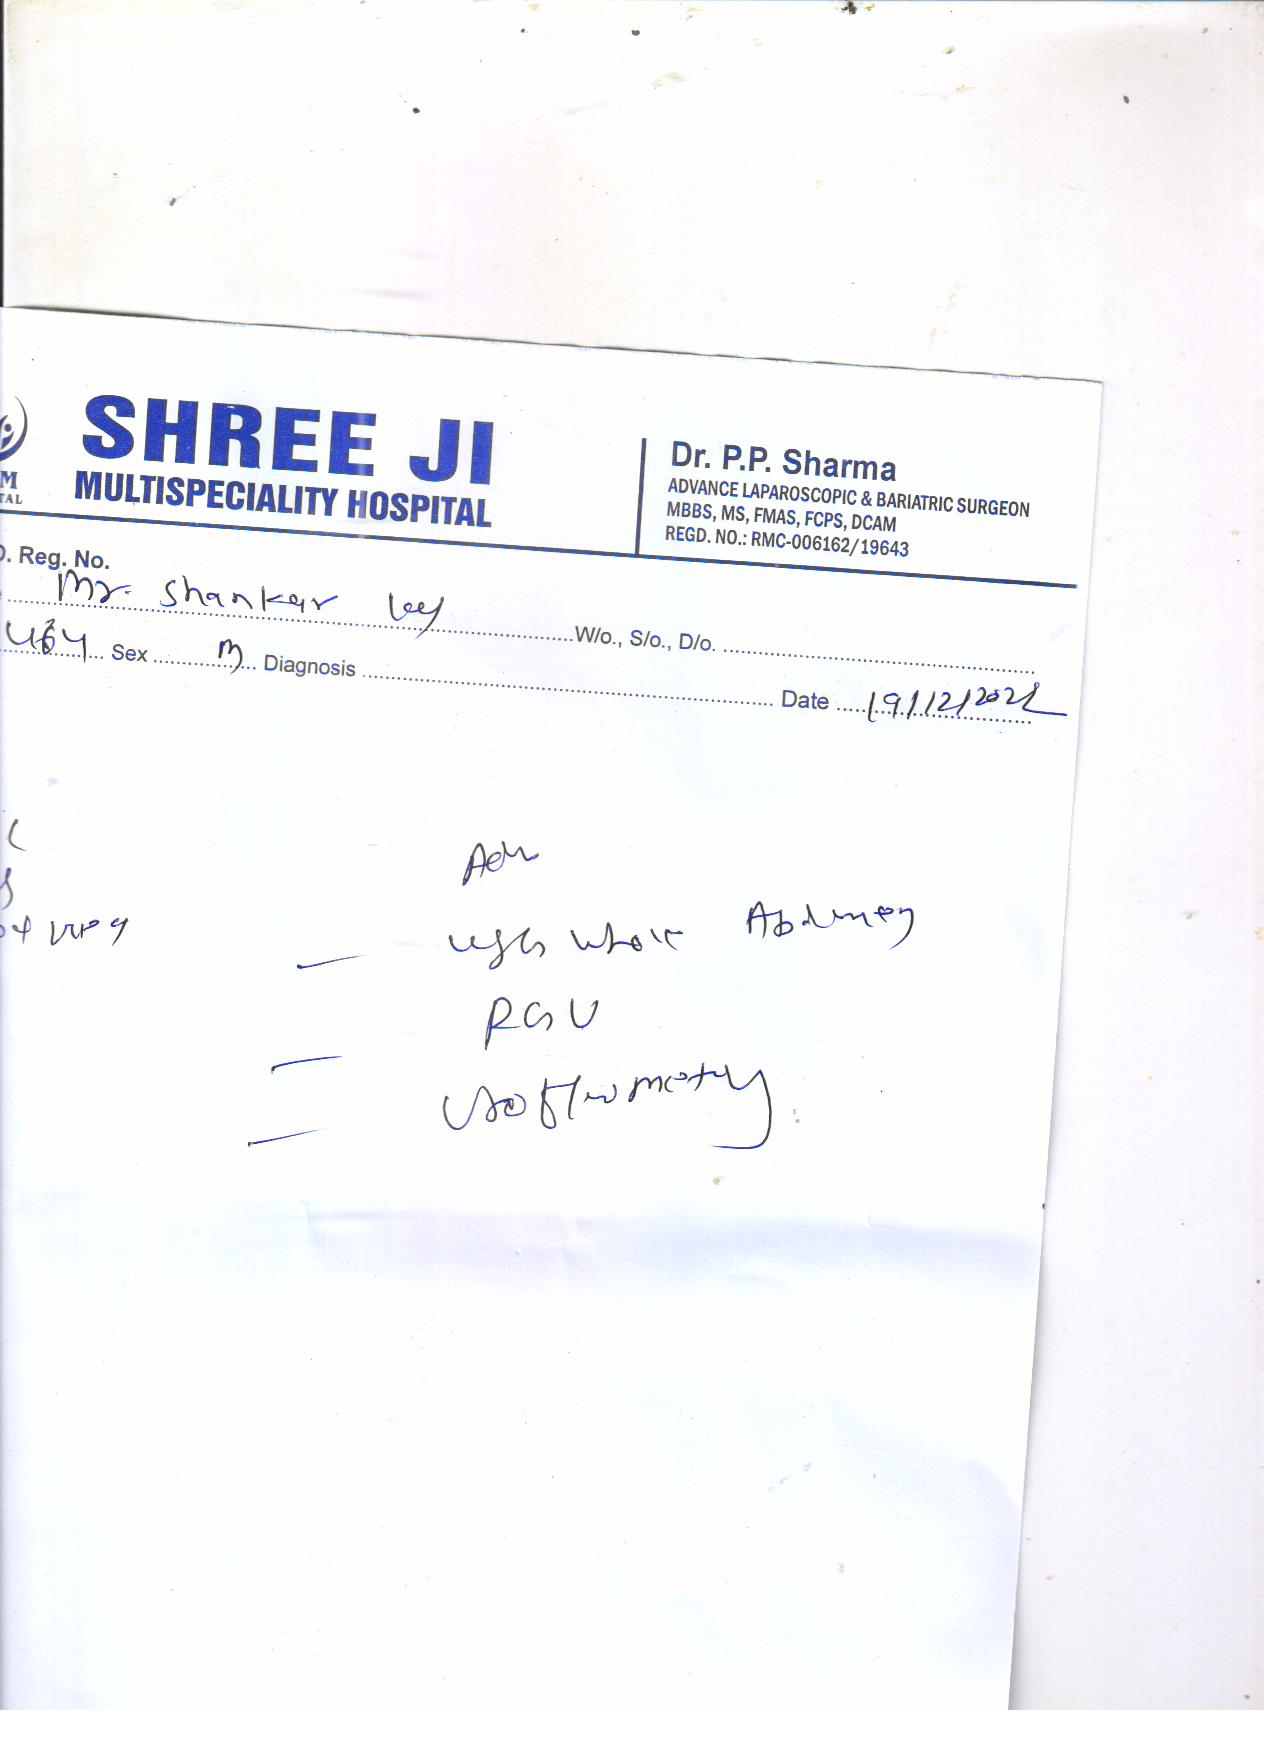 SHREE JI
MULTISPECIALITY HOSPITAL
Dr. P.P. Sharma
ADVANCE LAPAROSCOPIC & BARIATRIC SURGEON
MBBS, MS, FMAS, FCPS, DCAM
REGD. NO.: RMC-006162/19643
. Reg. No.
Mr. Shankar W/o., S/o., D/o.
Sex M Diagnosis Date 19/12/2022
Adv
USG Whole Abdomen
RGU
Uroflowmetry